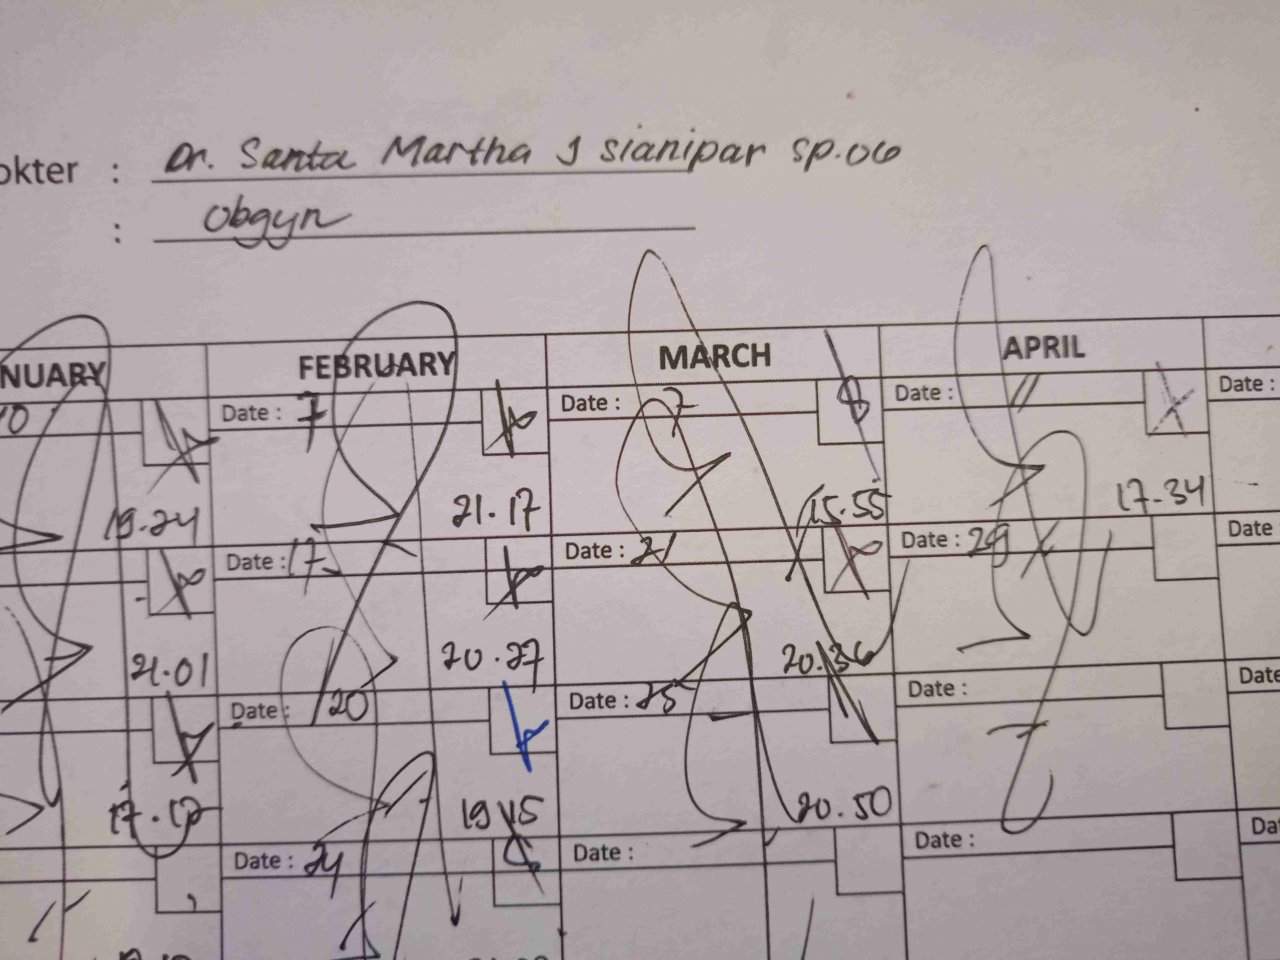 okter : Dr. Santa Martha J sianipar sp.OG
: Obgyn
NUARY FEBRUARY MARCH APRIL
10 Date : 7 Date : 7 Date : 11 Date :
19.24 21.17 15.55 17-34
Date : 17 Date : 21 Date : 29 Date
21.01 20.27 20.36
Date : 20 Date : 25 Date : Date
17.12 19.15 20.50
Date : 24 Date : Date : Da